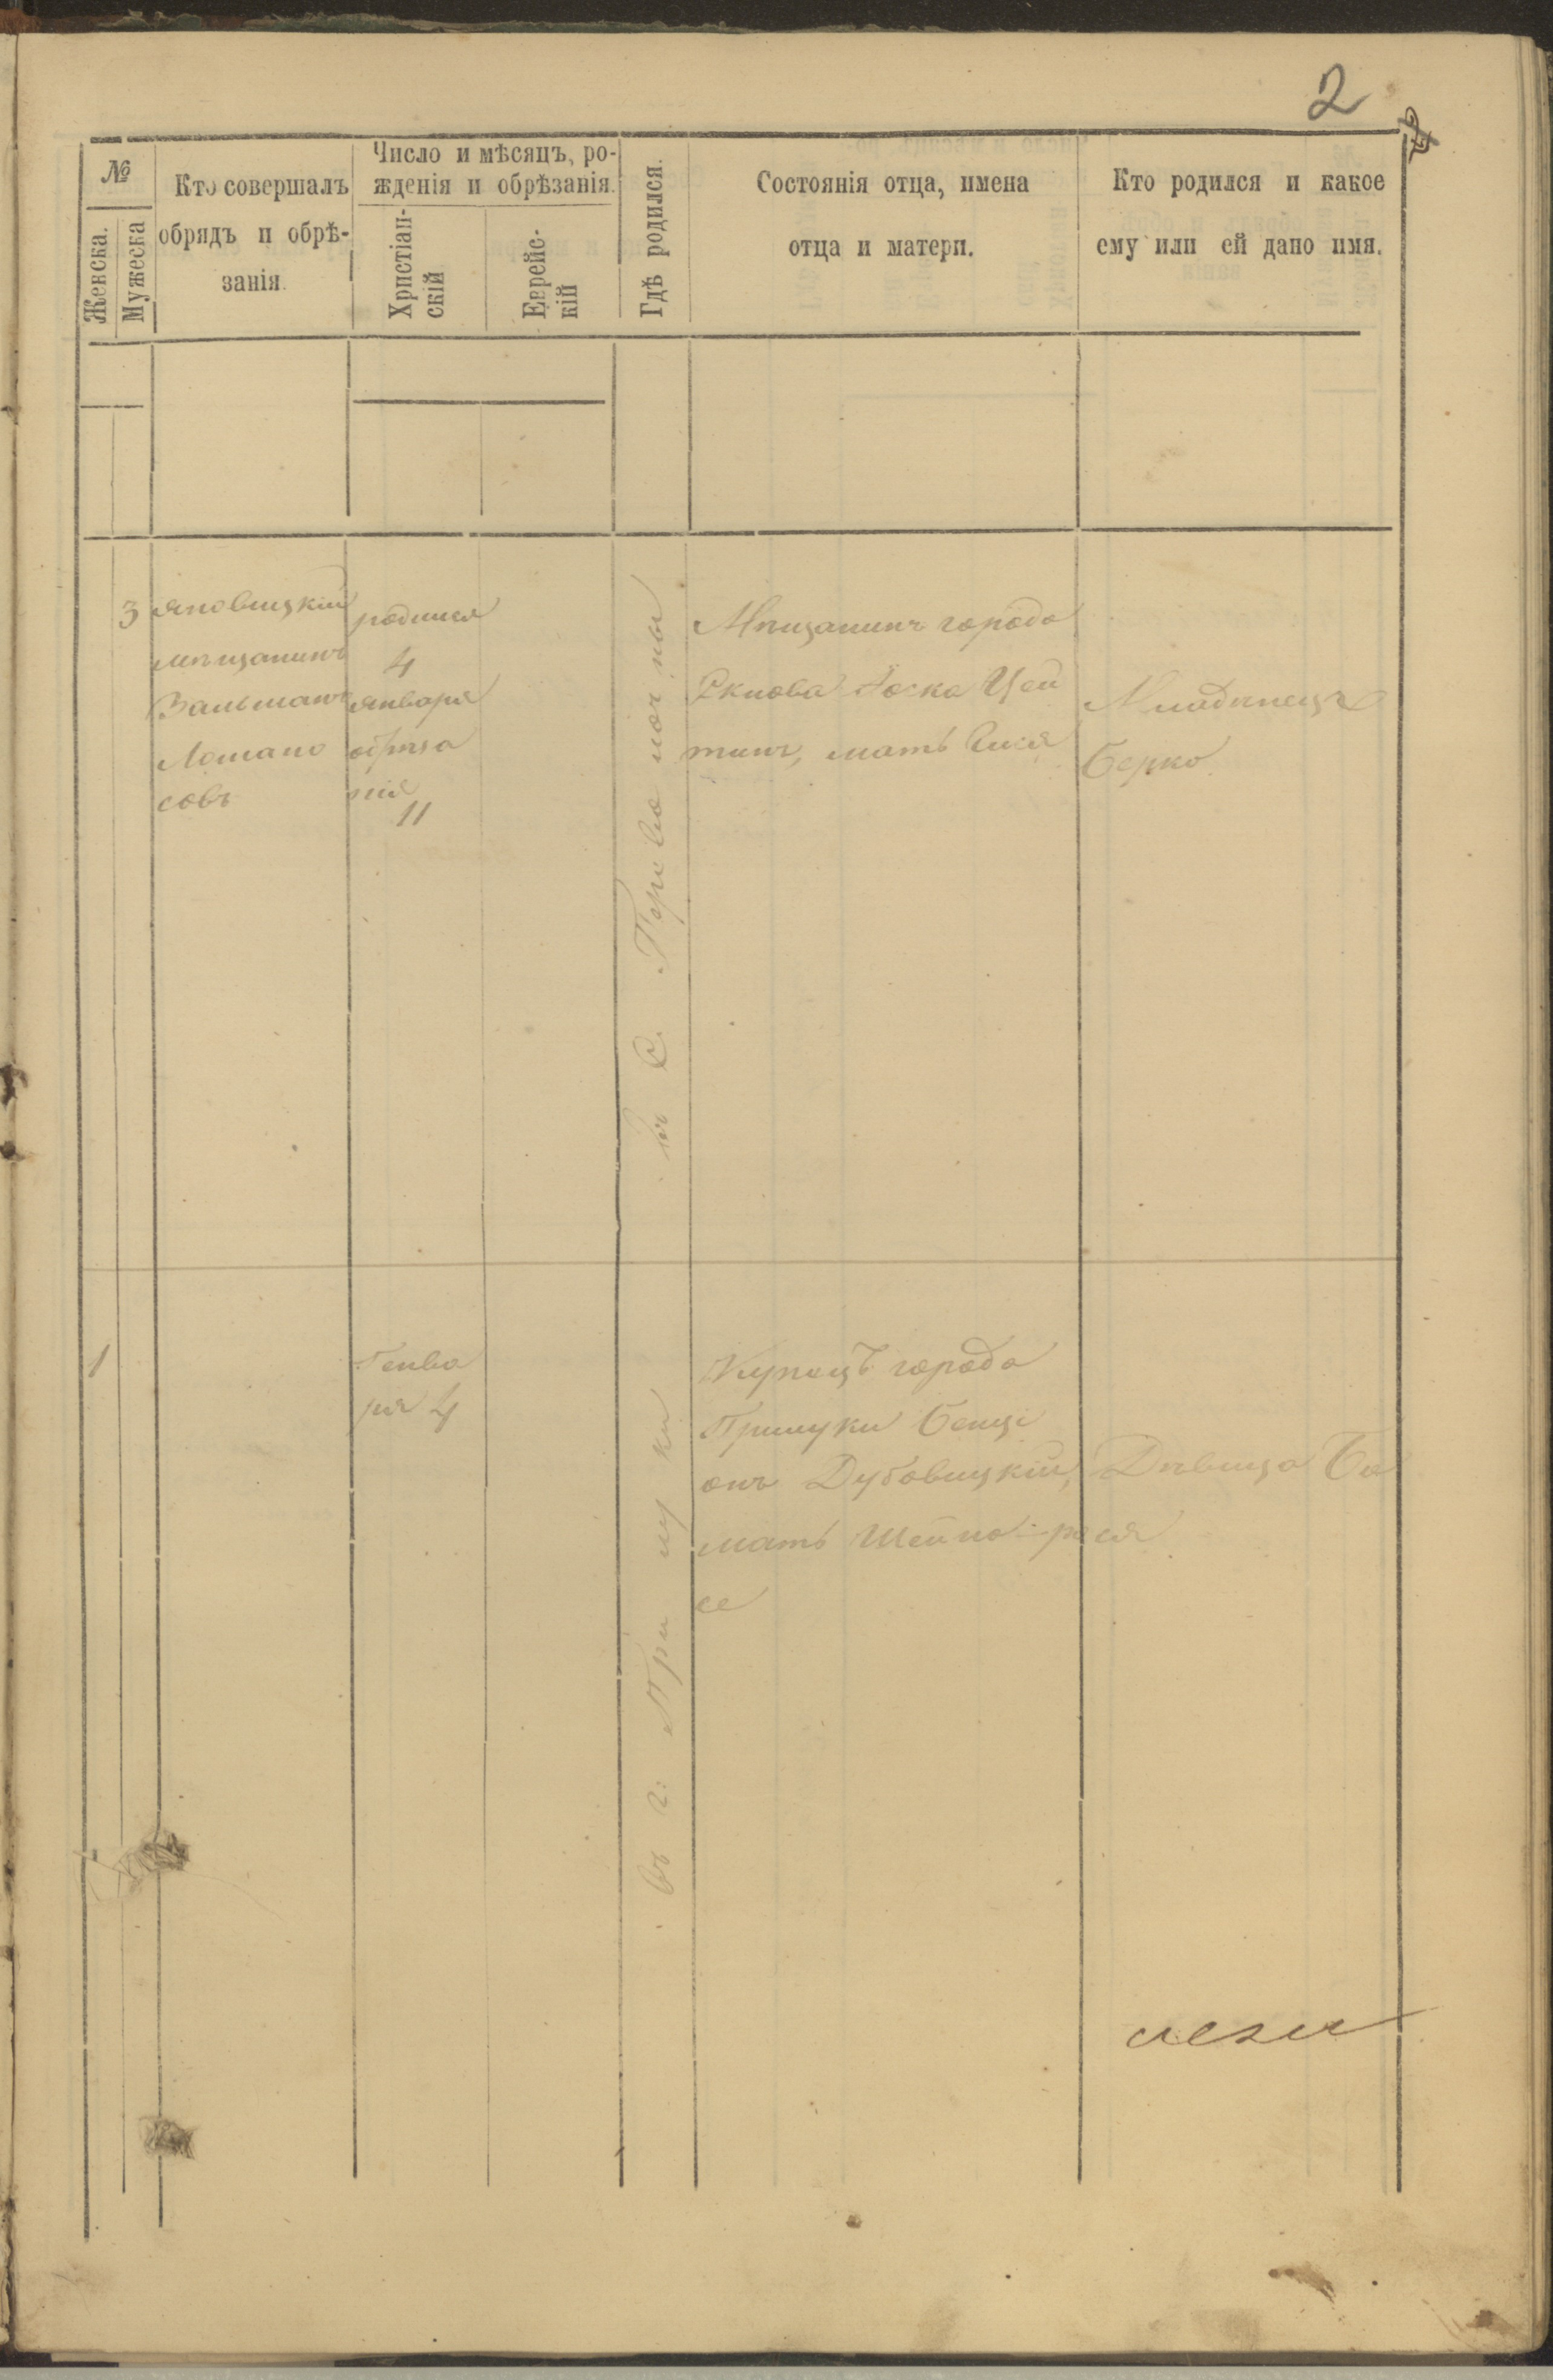 2
№
Женска.
Мужеска
Кто совершалъ
обрядъ и обрѣ-
занія.
Число и мѣсяцъ, ро-
жденія и обрѣзанія.
Христіан-
скій
Еврейс-
кій
Гдѣ родился.
Состоянія отца, имена
отца и матери.
Кто родился и какое
ему или ей дано имя.
3
Яновицкій
мѣщанинъ
Зальманъ
родился
4
января
обрѣза
нія
11
Мѣщанинъ города
Іоска Цей
тинъ, мать
Младенецъ
Берко
1
Генва
ря 4
въ г: Прилуки
Купецъ города
Прилуки Бенці
онъ Дубовицкій,
мать Шейна-
Дѣвица Ба
ся